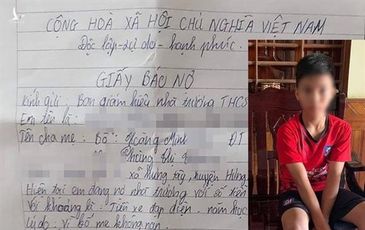 CỘNG HOÀ XÃ HỘI CHỦ NGHĨA VIỆT NAM
Độc lập - tự do - hạnh phúc.
GIẤY BÁO NỢ
Kính gửi: Ban giám hiệu nhà trường THCS
Em tên là:
Tên cha mẹ: Bố: Hoàng Minh ĐT
Phùng Thị
xã Hưng tây, huyện Hưng
Hiện tại em đang nợ nhà trường với số tiền
Với khoảng là: Tiền xe đạp điện. năm học
Lý do: Vì bố mẹ không nạp